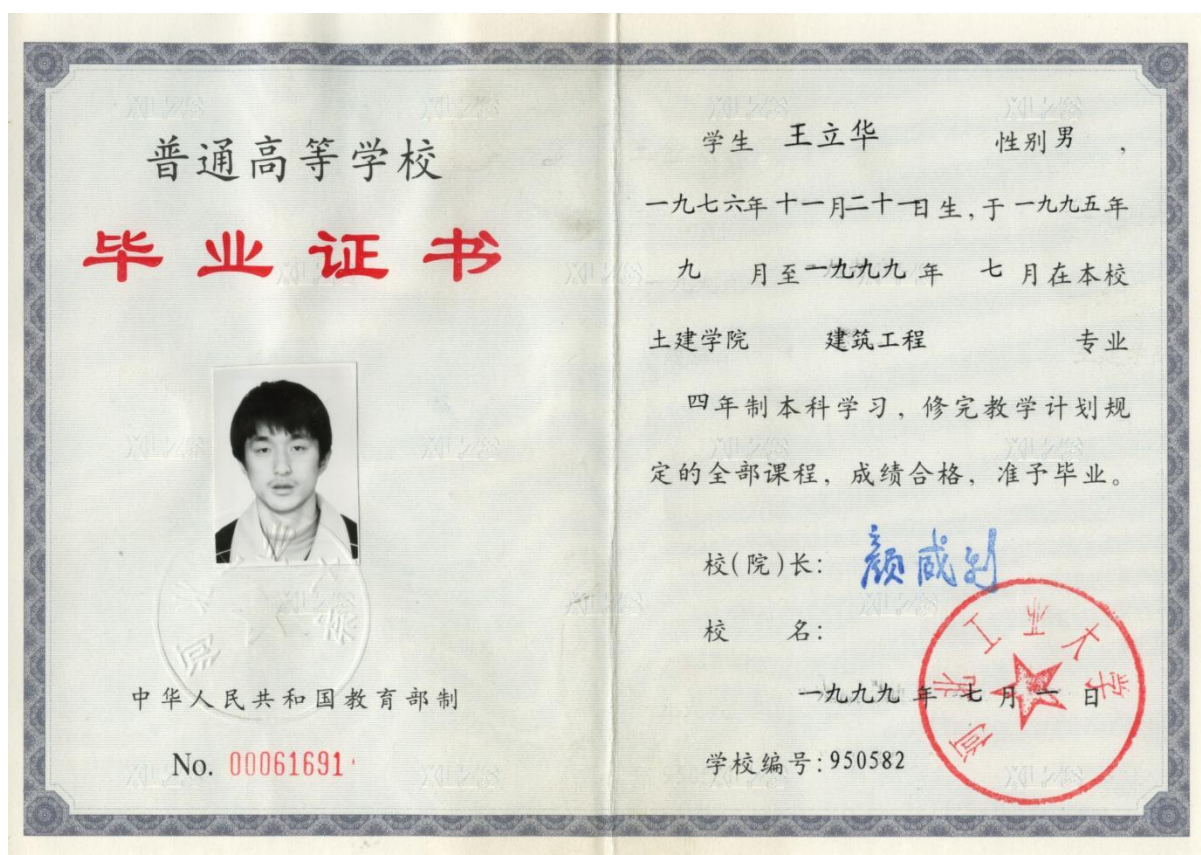 普通高等学校
毕业证书
中华人民共和国教育部制
No. 00061691
学生 王立华 性别 男 ，
一九七六年十一月二十一日生，于一九九五年
九 月至一九九九 年 七 月在本校
土建学院 建筑工程 专业
四年制本科学习，修完教学计划规
定的全部课程，成绩合格，准予毕业。
校(院)长：
校 名：
河北工业大学
一九九九 年 七 月 一 日
学校编号:950582